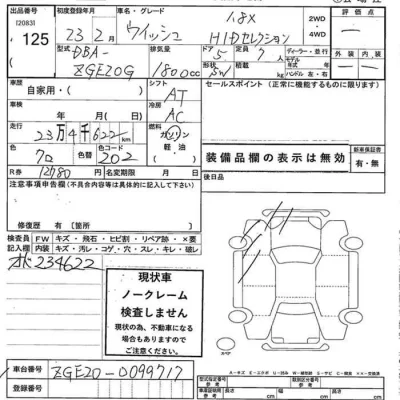 出品番号
(2083)
125
初度登録年月
23年2月
車名・グレード
ウイッシュ
1.8X
HIDセレクション
2WD
4WD
評価点
型式
DBA-
ZGE20G
排気量
1800cc
ドア
5
定員
7人
形状
積載
kg
ディーラー・並行
モデル 年
年式
ハンドル 左・右
外装
内装
車歴
自家用・( )
シフト
AT
セールスポイント (正常に機能するものに限ります)
走行
23万4千622km
冷房
AC
燃料
ガソリン
軽油
色
クロ
色替
色コード
202
装備品欄の表示は無効
新車保証書
有・無
R券
12780円
名変期限
月 日
後日品
注意事項申告欄(不具合内容等は具体的に記入して下さい)
修復歴 有 [箇所 ]
検査員記入欄
FW キズ・飛石・ヒビ割・リペア跡・×要
内装 キズ・汚レ・コゲ・穴・スレ・キレ・破レ
234622
現状車
ノークレーム
検査しません
現状の為、不動車になる
場合もありますので
ご注意ください。
スペア
車台番号
ZGE20-0099717
登録番号
A-キズ
cm